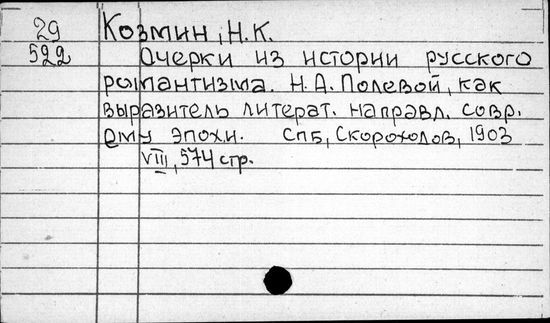 29 Козмин, Н.К.
522 Очерки из истории русского
романтизма. Н.А.Полевой, как
выразитель литерат. направл. совр.
ему эпохи. СПБ, Скороходов, 1903
VIII, 574 стр.